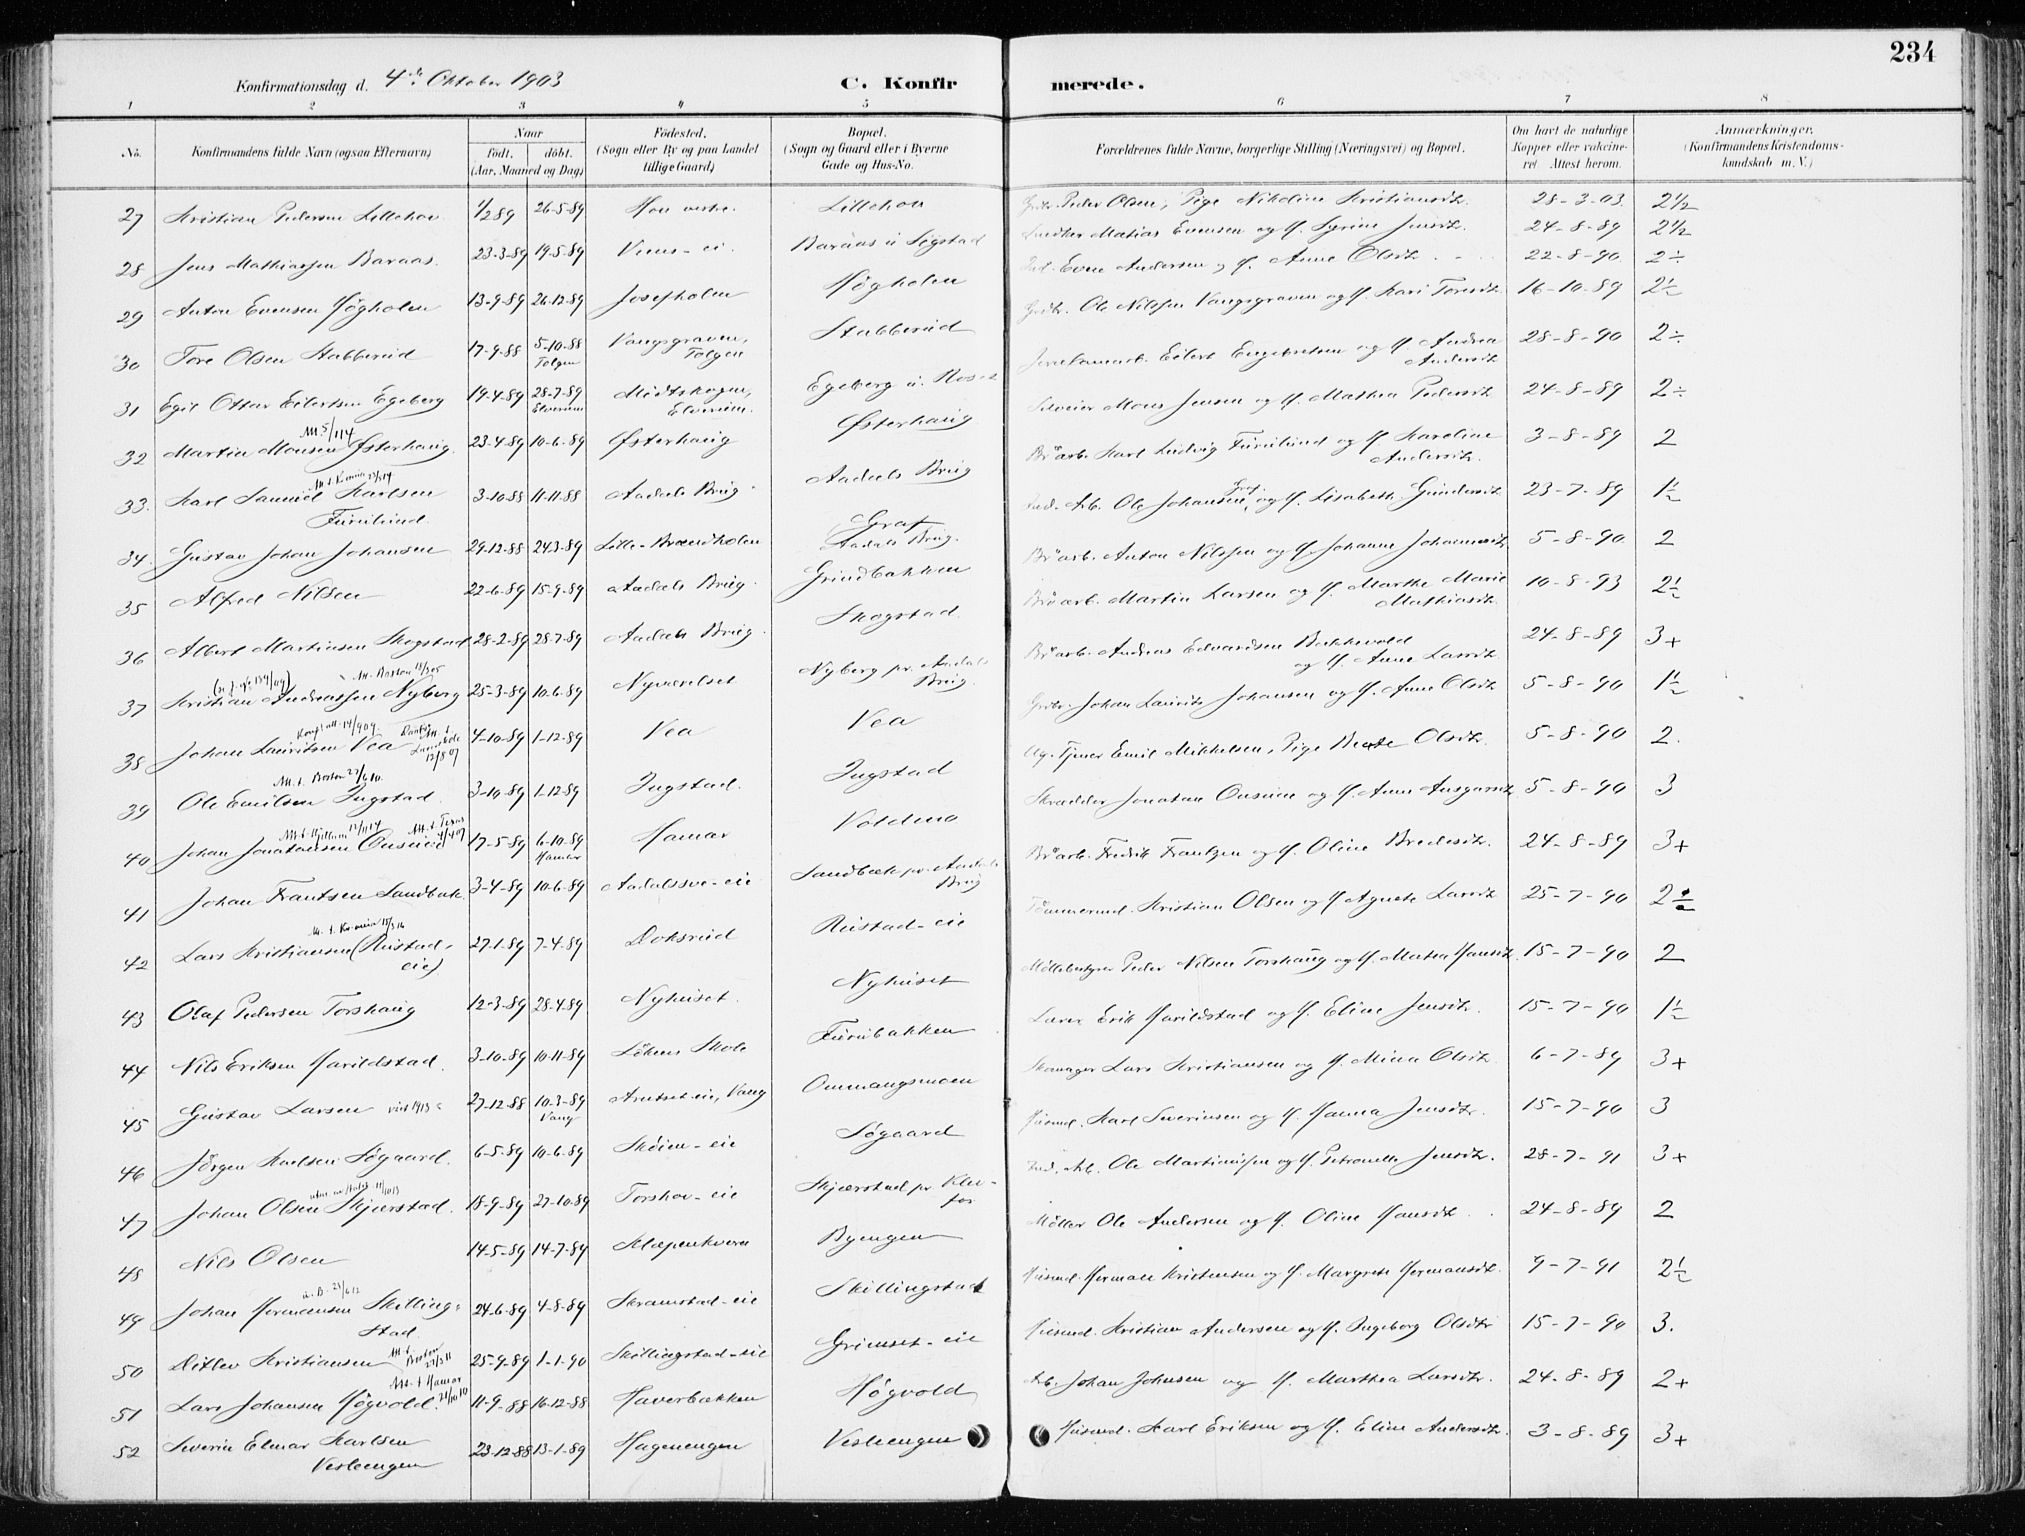 234
Konfirmationsdag d. 4de Oktober 1903
C. Konfirmerede.
1 2 3 4 5 6 7 8
No. Konfirmandens fulde Navn (ogsaa Efternavn) Naar født. døbt. (Aar, Maaned og Dag) Fødested. (Sogn eller By og paa Landet tillige Gaard) Bopæl. (Sogn og Gaard eller i Byerne Gade og Hus-No. Forældrenes fulde Navne, borgerlige Stilling (Næringsvei) og Bopæl. Om havt de naturlige Kopper eller vakcineret Attest herom. Anmærkninger. (Konfirmandens Kristendomskundskab m. V.)
27 Kristian Pedersen Lillehov 1/2 89 26-5-89 Hov vestre. Lillehov Peder Olsen, Pige Nikoline Kristiansdtr. 28-3-03 2½
28 Jens Mathiassen Baraas. 23-3-89 19-5-89 Baraas u. Sigstad Matias Evensen og H. Syrine Jensdtr. 24-8-89 2½
29 Anton Evensen Høgholen 13-9-89 26-12-89 Josefholen Høgholen Ind. Even Andersen og H. Anne Olsdtr. 22-8-90 2÷
30 Tore Olsen Stabberud 17-9-88 5-10-88 Tolgen Vangsgraven, Tolgen Stabberud Grdbr. Ole Nilssen Vangsgraven og H. Kari Toresdtr. 16-10-89 2½
31 Egil Ottar Eilertsen Egeberg 19-4-89 28-7-89 Elverum Midtskogen, Elverum. Egeberg u. Eilert Engebretsen og H. Andrea Andersdtr. 28-8-90 2÷
32 Martin Monsen Østerhaug. Att. 5/1 14 23-4-89 10-6-89 Østerhaug Østerhaug Selveier Mons Jensen og H. Mathea Pedersdtr. 24-8-89 2÷
33. Karl Samuel Karlsen Furulund. 3-10-88 11-11-88 Aadals Brug. Aadals Brug Brøarb. Karl Ludvig Furulund og H. Karoline Andersdtr. 3-8-89 2
34 Gustav Johan Johansen 29-12-88 24-3-89 Lille-Brændholen Graf Aadals Brug. Ind. Arb. Ole Johansen Graf. og H. Lisabeth Gundersdtr. 23-7-89 1½
35 Alfred Nilsen 22-6-89 15-9-89 Aadals Brug. Grindbakken Brøarb. Anton Nilssen og H. Johanne Johannesdtr. 5-8-90 2
36 Albert Martinsen Skogstad 28-2-89 28-7-89 Aadals Brug. Skogstad. Brøarb. Martin Larsen og H. Marthe Marie Mathiasdtr. 10-8-93 2½
37 Kristian Andreassen Nyberg Att. Boston 25-3-89 10-6-89 Nyværelset Nyberg pr. Aadals Brug. Brøarb. Andreas Edvardsen Bakkevold og H. Anne Larsdtr. 24-8-89 3+
38 Johan Lauritsen Vea 4-10-89 1-12-89 Vea Vea Grdbr. Johan Laurits Johansen og H. Anne Olsdtr. 5-8-90 1½
39 Ole Emilsen Ingstad. Att. t. Boston 3-10-89 1-12-89 Ingstad. Ingstad Ug. Tjener Emil Mikkelsen, Pige Beate Olsdtr. 5-8-90 2.
40 Johan Jonatansen Onsum 17-5-89 6-10-89 Hamar Hamar Voldmo Skrædder Jonatan Onsum og H. Anne Ansgarsdtr. 5-8-90 3
41 Johan Frantsen Sandbæk. 3-4-89 10-6-89 Aadalssve-eie Sandbæk pr. Aadals Brug Brøarb. Fredrik Frantzen og H. Oline Bredesdtr. 24-8-89 3+
42 Lars Kristiansen (Rustad-eie) 27-1-89 7-4-89 Doksrud Rustad-eie Tømmermd. Kristian Olsen og H. Agnete Larsdtr. 25-7-90 2½
43 Olaf Pedersen Torshaug 12-3-89 28-4-89 Nyhuset. Nyhuset Møllebestyrer Peder Nilsen Torshaug og H. Matea Hansdtr. 15-7-90 2
44 Nils Eriksen Harildstad. 3-10-89 10-11-89 Løkens Skole Furubakken Lærer Erik Harildstad og H. Eline Jensdtr. 15-7-90 1½
45 Gustav Larsen 27-12-88 10-3-89 Vang Arntset-eie, Vang Ommangsmoen Skomager Lars Kristiansen og H. Mina Olsdtr. 6-7-89 3+
46 Jørgen Karlsen Søgaard. 6-5-89 10-6-89 Skøien-eie Søgaard Husmd. Karl Severinsen og H. Hanna Jensdtr. 15-7-90 3
47 Johan Olsen Skjærstad. 18-9-89 27-10-89 Torshov-eie Skjærstad pr. Kløvfos Ind. Arb. Ole Martinussen og H. Petronelle Jensdtr. 28-7-91 3+
48 Nils Olsen 14-5-89 14-7-89 Klæpenkvern Byengen Møller Ole Andersen og H. Oline Hansdtr. 24-8-89 2
49 Johan Hermansen Skillingstad. 24-6-89 4-8-89 Skramstad-eie Skillingstad Husmd. Herman Kristensen og H. Margrete Hermansdtr. 9-7-91 2½
50 Ditlev Kristiansen Att. t. Boston 25-9-89 1-1-90 Skillingstad-eie Grimset-eie Husmd. Kristian Andersen og H. Ingeborg Olsdtr 15-7-90 3.
51 Lars Johansen Høgvold. Att. t. Hamar 21/10 10 11-9-88 16-12-88 Haverbakken Høgvold Arb. Johan Johnsen og H. Marthea Larsdtr. 24-8-89 2+
52 Severin Elmar Karlsen Vesleengen 23-12-88 13-1-89 Hagenengen Vesleengen Husmd. Karl Eriksen og H. Eline Andersdtr. 3-8-89 3+